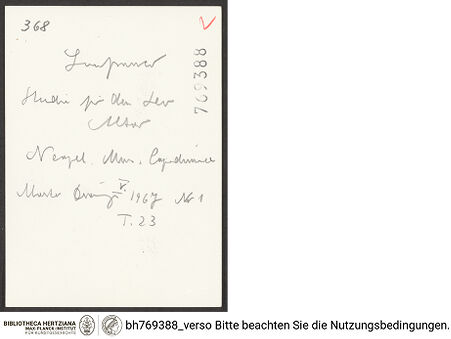 368
769388
Lanfranco
Studie für den
Altar
Neapel. Mus. Capodimonte
Master Drawings V. 1967 Nr 1
T. 23
BIBLIOTHECA HERTZIANA
MAX-PLANCK-INSTITUT
FÜR KUNSTGESCHICHTE
bh769388_verso Bitte beachten Sie die Nutzungsbedingungen.